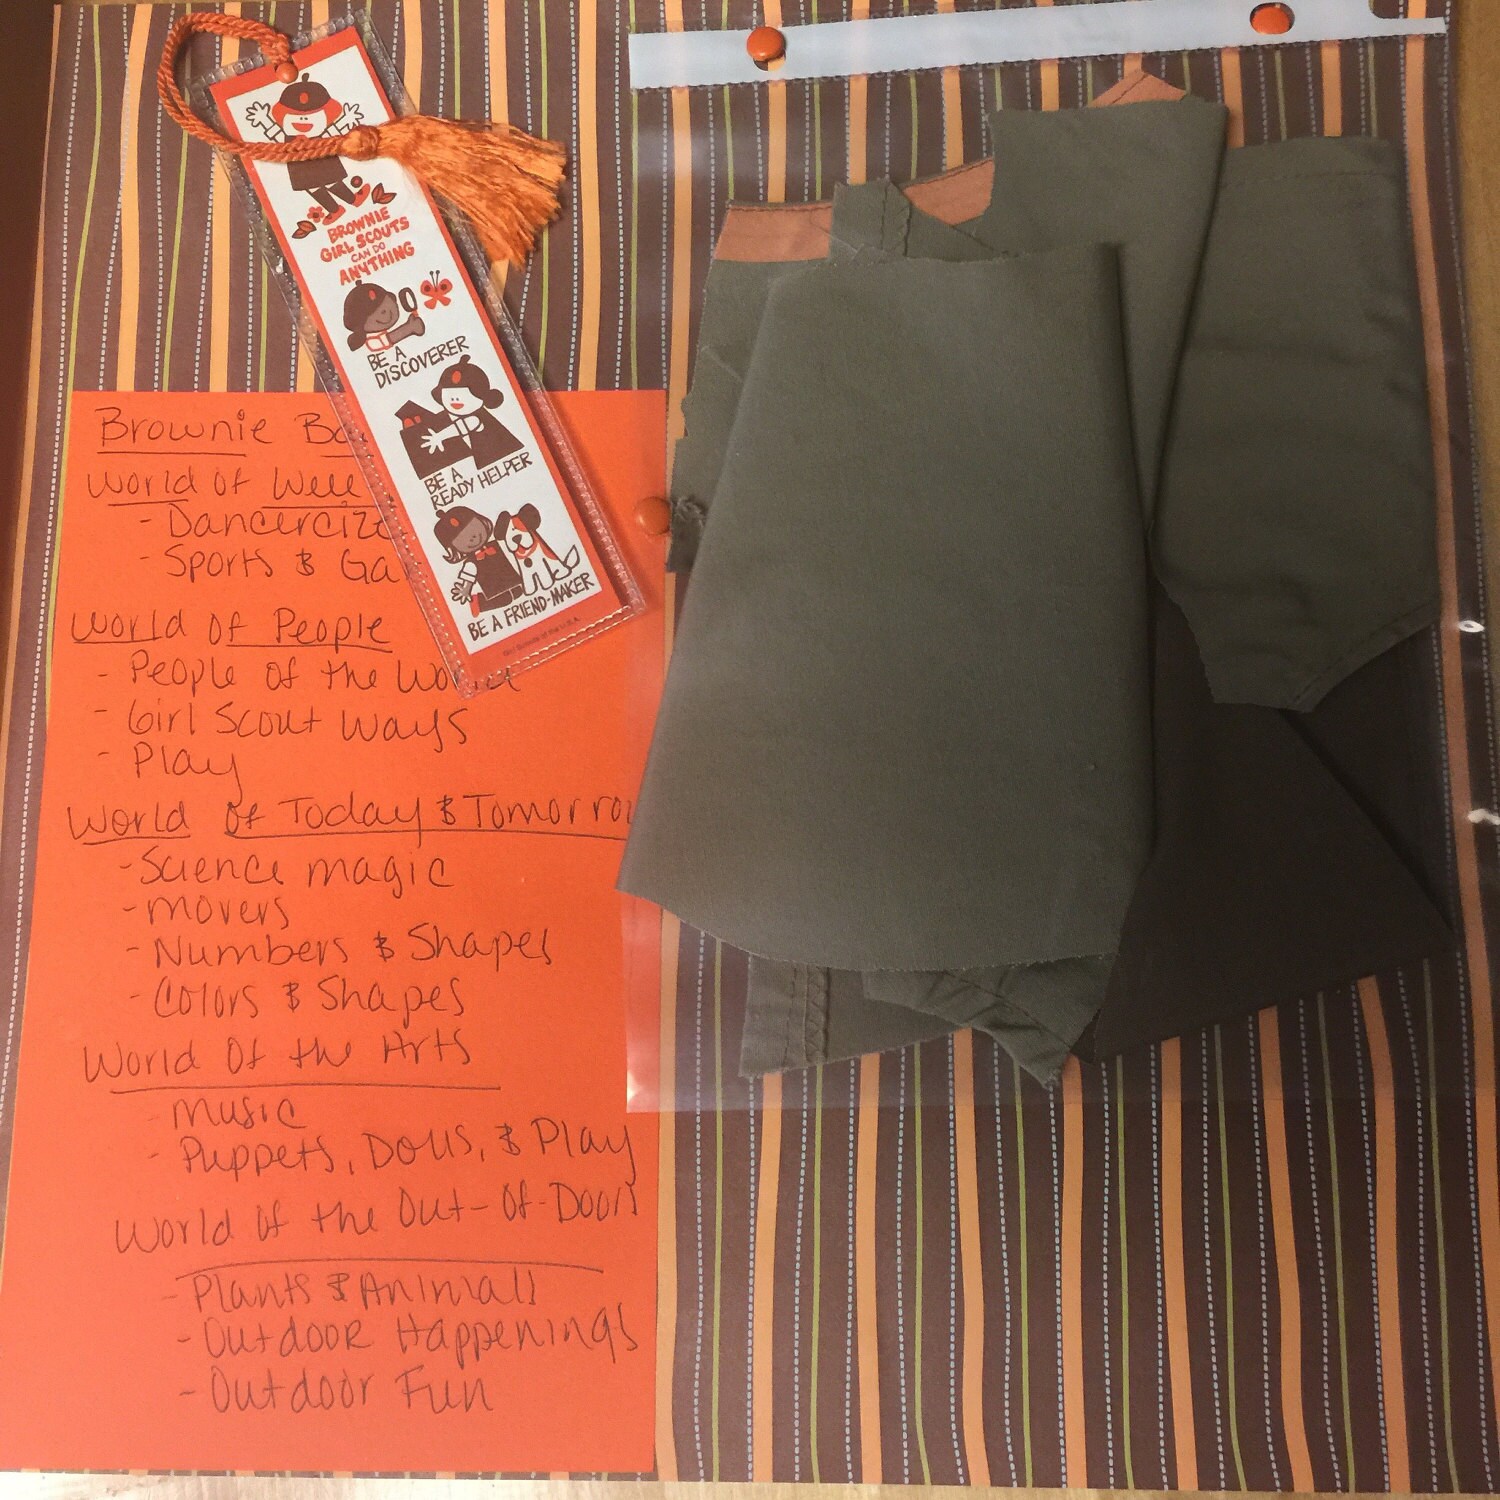 BROWNIE
GIRL SCOUTS
CAN DO
ANYTHING
BE A
DISCOVERER
BE A
READY HELPER
BE A FRIEND-MAKER
Girl Scouts of the U.S.A.
Brownie
World of Well
- Dancercize
- Sports & Ga
World of People
- People of the World
- Girl Scout Ways
- Play
World of Today & Tomorro
- Science magic
- movers
- Numbers & Shapes
- Colors & Shapes
World of the Arts
- music
- Puppets, Dolls, & Play
World of the Out-of-Doors
- Plants & Animals
- Outdoor Happenings
- Outdoor Fun